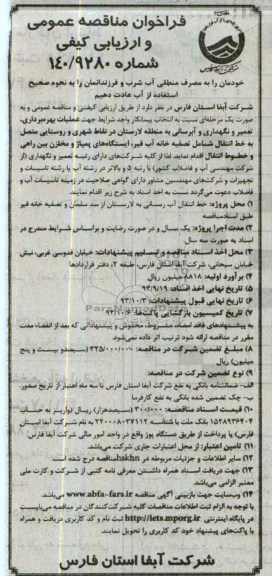 فراخوان مناقصه عمومی
و ارزیابی کیفی
شماره ۱۴۰/۹۲۸۰
خودمان را به مصرف منطقی آب شرب و فرزندانمان را به نحوه صحیح
استفاده از آب عادت دهیم
شرکت آبفا استان فارس در نظر دارد از طریق ارزیابی کیفی و مناقصه عمومی و به
صورت یک مرحله‌ای نسبت به انتخاب پیمانکار واجد شرایط جهت عملیات بهره‌برداری،
تعمیر و نگهداری و آبرسانی به منطقه لارستان در نقاط شهری و روستایی متصل
به خط انتقال شامل تصفیه خانه آب قیر، ایستگاه‌های پمپاژ و مخازن بین راهی
و خطوط انتقال اقدام نماید. لذا از کلیه شرکت‌های دارای رتبه تعمیر و نگهداری (از
شرکت مهندسی آب و فاضلاب کشور) با رتبه ۵ و بالاتر در رشته آب یا رشته تاسیسات و
تجهیزات و شرکت‌های مهندسین مشاور دارای گواهی صلاحیت در زمینه تاسیسات آب و
فاضلاب دعوت می‌گردد نسبت به اخذ اسناد به شرح زیر اقدام نمایند.
۱) محل پروژه: خط انتقال آب رسانی به لارستان از سد سلمان و تصفیه خانه قیر
طبق اسناد مناقصه
۲) مدت اجرا پروژه: یک سال و در صورت رضایت و براساس شرایط مندرج در
اسناد به صورت سه سال
۳) محل اخذ اسناد مناقصه و تسلیم پیشنهادات: خیابان فردوسی غربی، نبش
خیابان سبحانی، شرکت آبفا استان فارس، طبقه ۳، دفتر قراردادها
۴) برآورد اولیه: ۸۸۱۸ میلیون ریال
۵) تاریخ نهایی اخذ اسناد: ۹۳/۹/۱۹
۶) تاریخ نهایی قبول پیشنهادات: ۹۳/۱۰/۳
۷) تاریخ کمیسیون بازگشایی پاکات: ۹۳/۱۰/۶
به پیشنهادهای فاقد امضاء، مشروط، مخدوش و پیشنهاداتی که بعد از انقضاء مدت
مقرر در مناقصه ارائه شود ترتیب اثر داده نمی‌شود.
۸) مبلغ تضمین شرکت در مناقصه: ۳۲۵/۰۰۰/۰۰۰ (سیصد و بیست و پنج
میلیون) ریال
۹) نوع تضمین شرکت در مناقصه:
الف- ضمانتنامه بانکی به نفع شرکت آبفا استان فارس با سه ماه اعتبار از تاریخ صدور.
ب- چک تضمین شده بانکی به نفع کارفرما
۱۰) قیمت اسناد مناقصه: ۳۰۰/۰۰۰ (سیصد هزار) ریال (واریز به حساب
بانک ملت با شناسه
فارس) یا پرداخت از طریق دستگاه پوز واقع در واحد امور مالی شرکت آبفا فارس)
۱۱) تامین اعتبار: از محل اعتبارات جاری شرکت می‌باشد.
۱۲) سایر اطلاعات و جزئیات مربوطه در اسناد مناقصه درج شده است
۱۳) جهت دریافت اسناد همراه داشتن معرفی نامه کتبی از شرکت و کارت ملی
معتبر الزامی می‌باشد.
۱۴) وب‌سایت جهت بازبینی آگهی مناقصه www.abfa-fars.ir می‌باشد
با توجه به الزام ثبت اطلاعات مناقصات کلیه شرکت‌کنندگان در مناقصه می‌بایست
در پایگاه اینترنتی http://iets.mporg.ir ثبت نام و کد کاربری دریافت و همراه
با پاکت‌های پیشنهاد خود کد کاربری را تحویل نمایند.
شرکت آبفا استان فارس